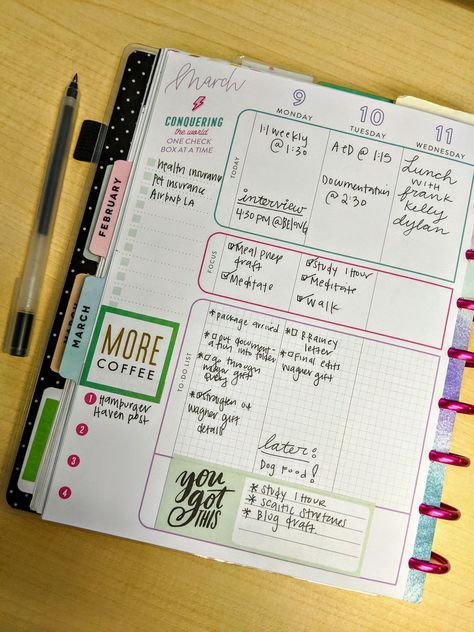 March
CONQUERING
the world
ONE CHECK
BOX AT A TIME
Health Insurance
Pet Insurance
Airbnb LA
FEBRUARY
MARCH
MORE
COFFEE
1 Hamburger
Haven post
2
3
4
9
MONDAY
10
TUESDAY
11
WEDNESDAY
TODAY
1:1 Weekly
@ 1:30
interview
4:30 PM @
A+D @ 1:15
Documentation
@ 2:30
Lunch
with
frank
kelly
dylan
FOCUS
Meal prep
draft
Meditate
Study 1 Hour
Meditate
Walk
TO-DO LIST
* package arrived
* put document-
ation into folder
* go through
wagner gift
query
* straighten out
wagner gift
details
* Brainey
letter
* Final edits
Wagner gift
later:
Dog Food!
you
got
THIS
* Study 1 Hour
* Sciatic stretches
* Blog draft